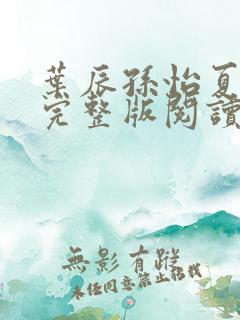 葉辰孫怡夏
完整版閱讀
無影有蹤
未经同意禁止搭载